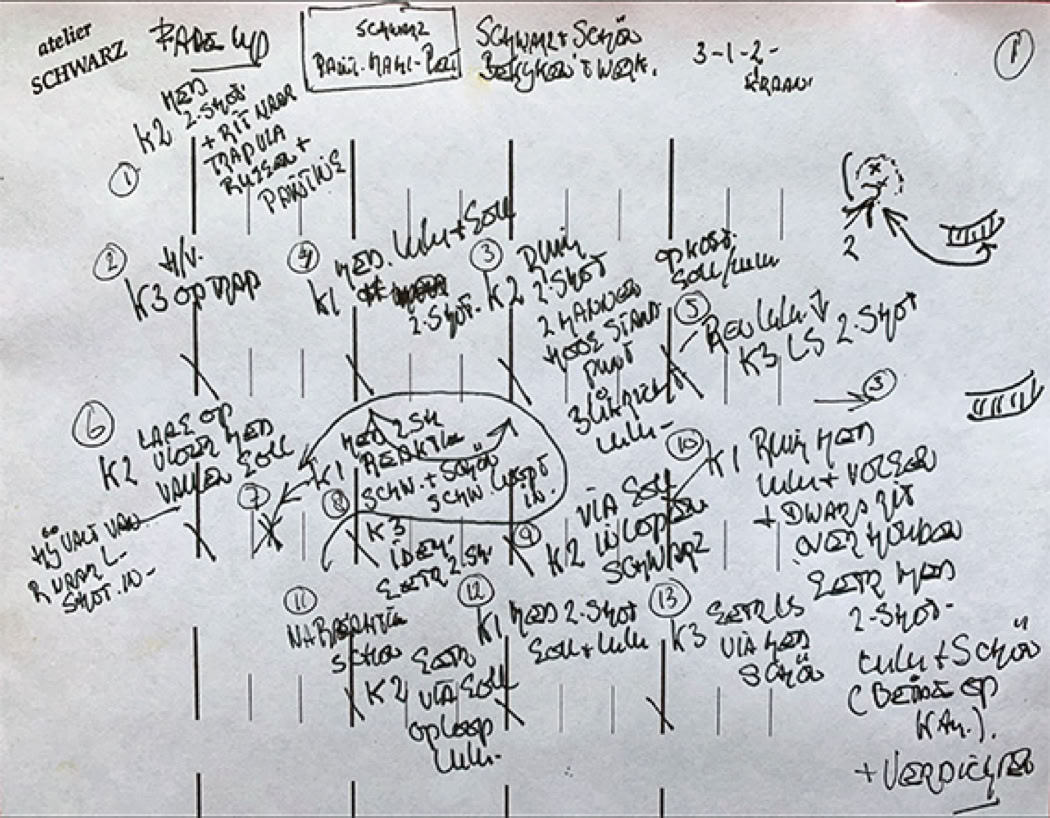 atelier
SCHWARZ
FADE UP
SCHWARZ
SCHWARZ + SCHÖN
BEKYKEN 'T WERK.
3-1-2-
KRAAN
1
1
K2 MED
2-SHOT
+ RIT NAAR
TRAP VIA
2
H/V.
K3 OP TRAP
4
K1 MED. LULU + GOLL
2-SHOT.
3
K2 RUIM
2-SHOT
2 MANNEN
HOGE STAND
PUNT
LULU-
OPKOST.
GOLL/LULU
5
REV LULU ↓
K3 LS 2-SHOT
2
3
6
K2 LAGE OP
VLOER MED
VALLEN GOLL
HY VALT VAN
R NAAR L-
SHOT. IN-
7
K1 MED 2SH
REAKTIE
SCHW. + SCHÖN
SCHW. LOOPT
IN.
8
K3
IDEM.
EERST 2.SH.
9
K2 VIA GOLL
INLOOPEN
SCHWARZ
10
K1 RUIM MED
LULU + VOLGEN
+ DWARS RIT
OVERHOUDEN
EERST MED
2-SHOT-
LULU + SCHÖN
(BEIDE OP
+ VERDICHTEN
11
NA REAKTIE
SCHÖN
K2 EERST
VIA GOLL
OPLOOP
LULU-
12
K1 MED 2-SHOT
GOLL + LULU
13
K3 EERST LS
VIA MED
SCHÖN